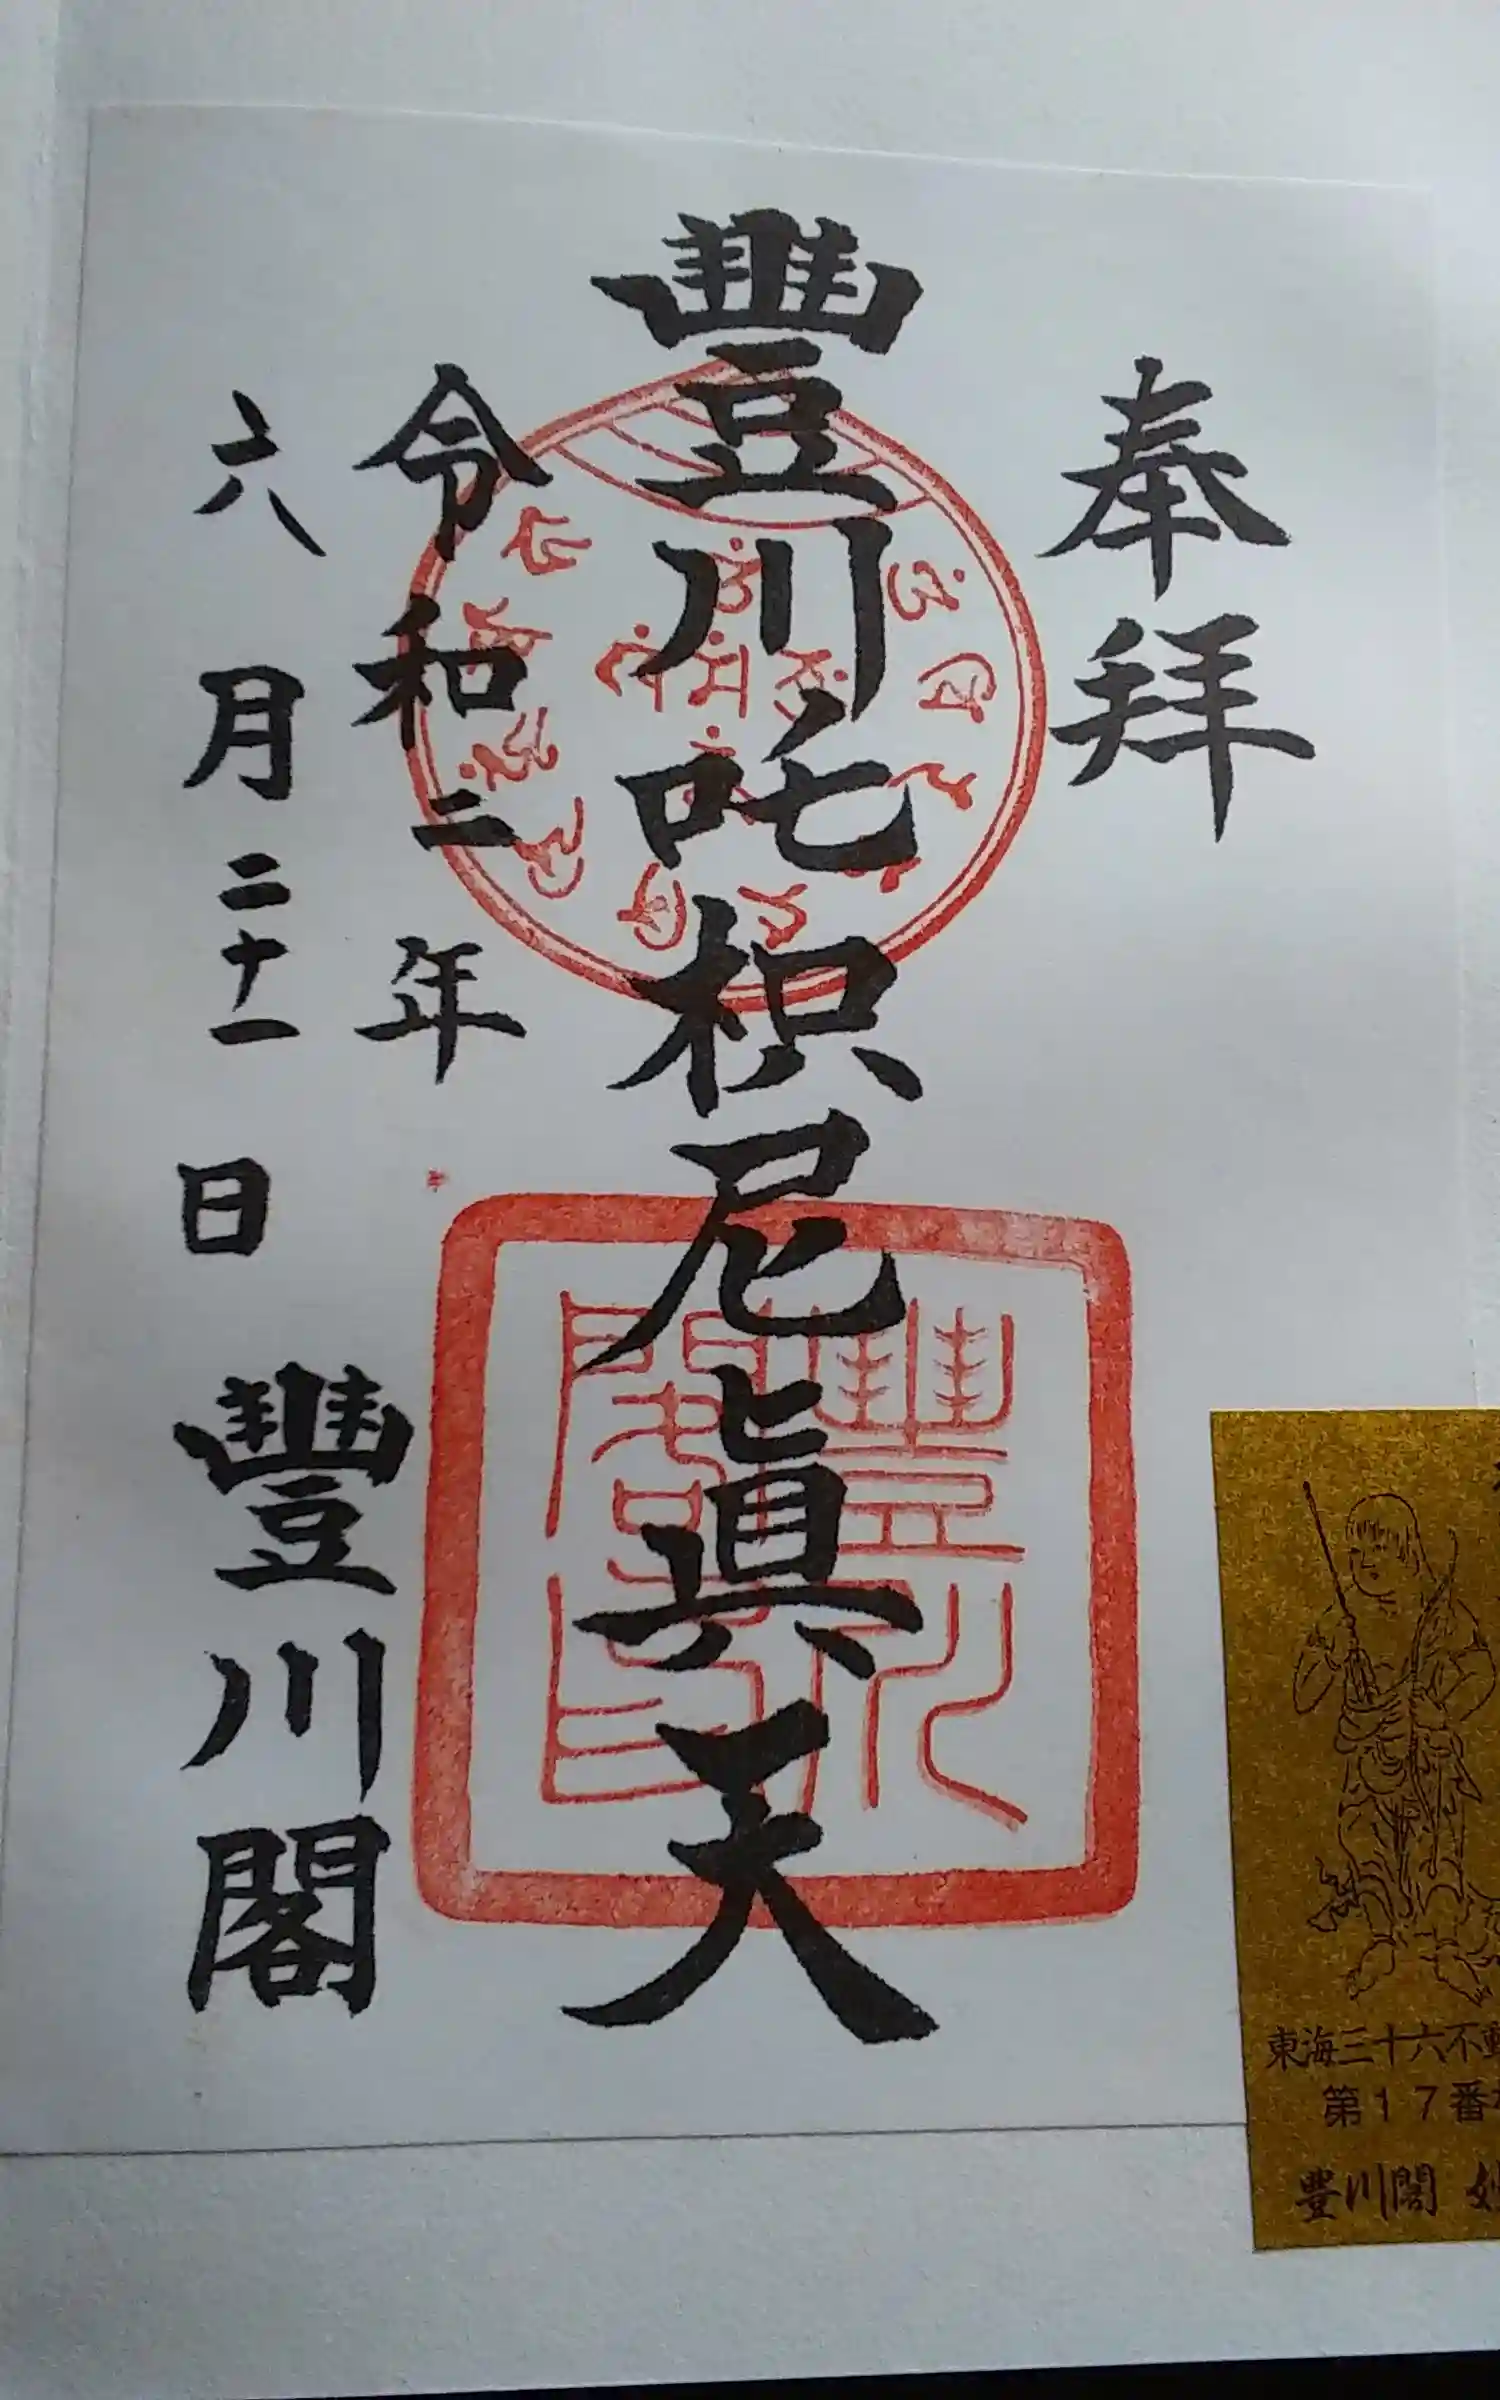 奉拝
豐川吒枳尼眞天
令和二年
六月二十一日
豐川閣
豐川閣印
東海三十六不動
第17番
豐川閣